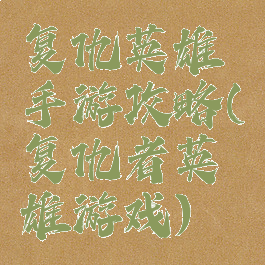 复仇英雄
手游攻略(
复仇者英
雄游戏)